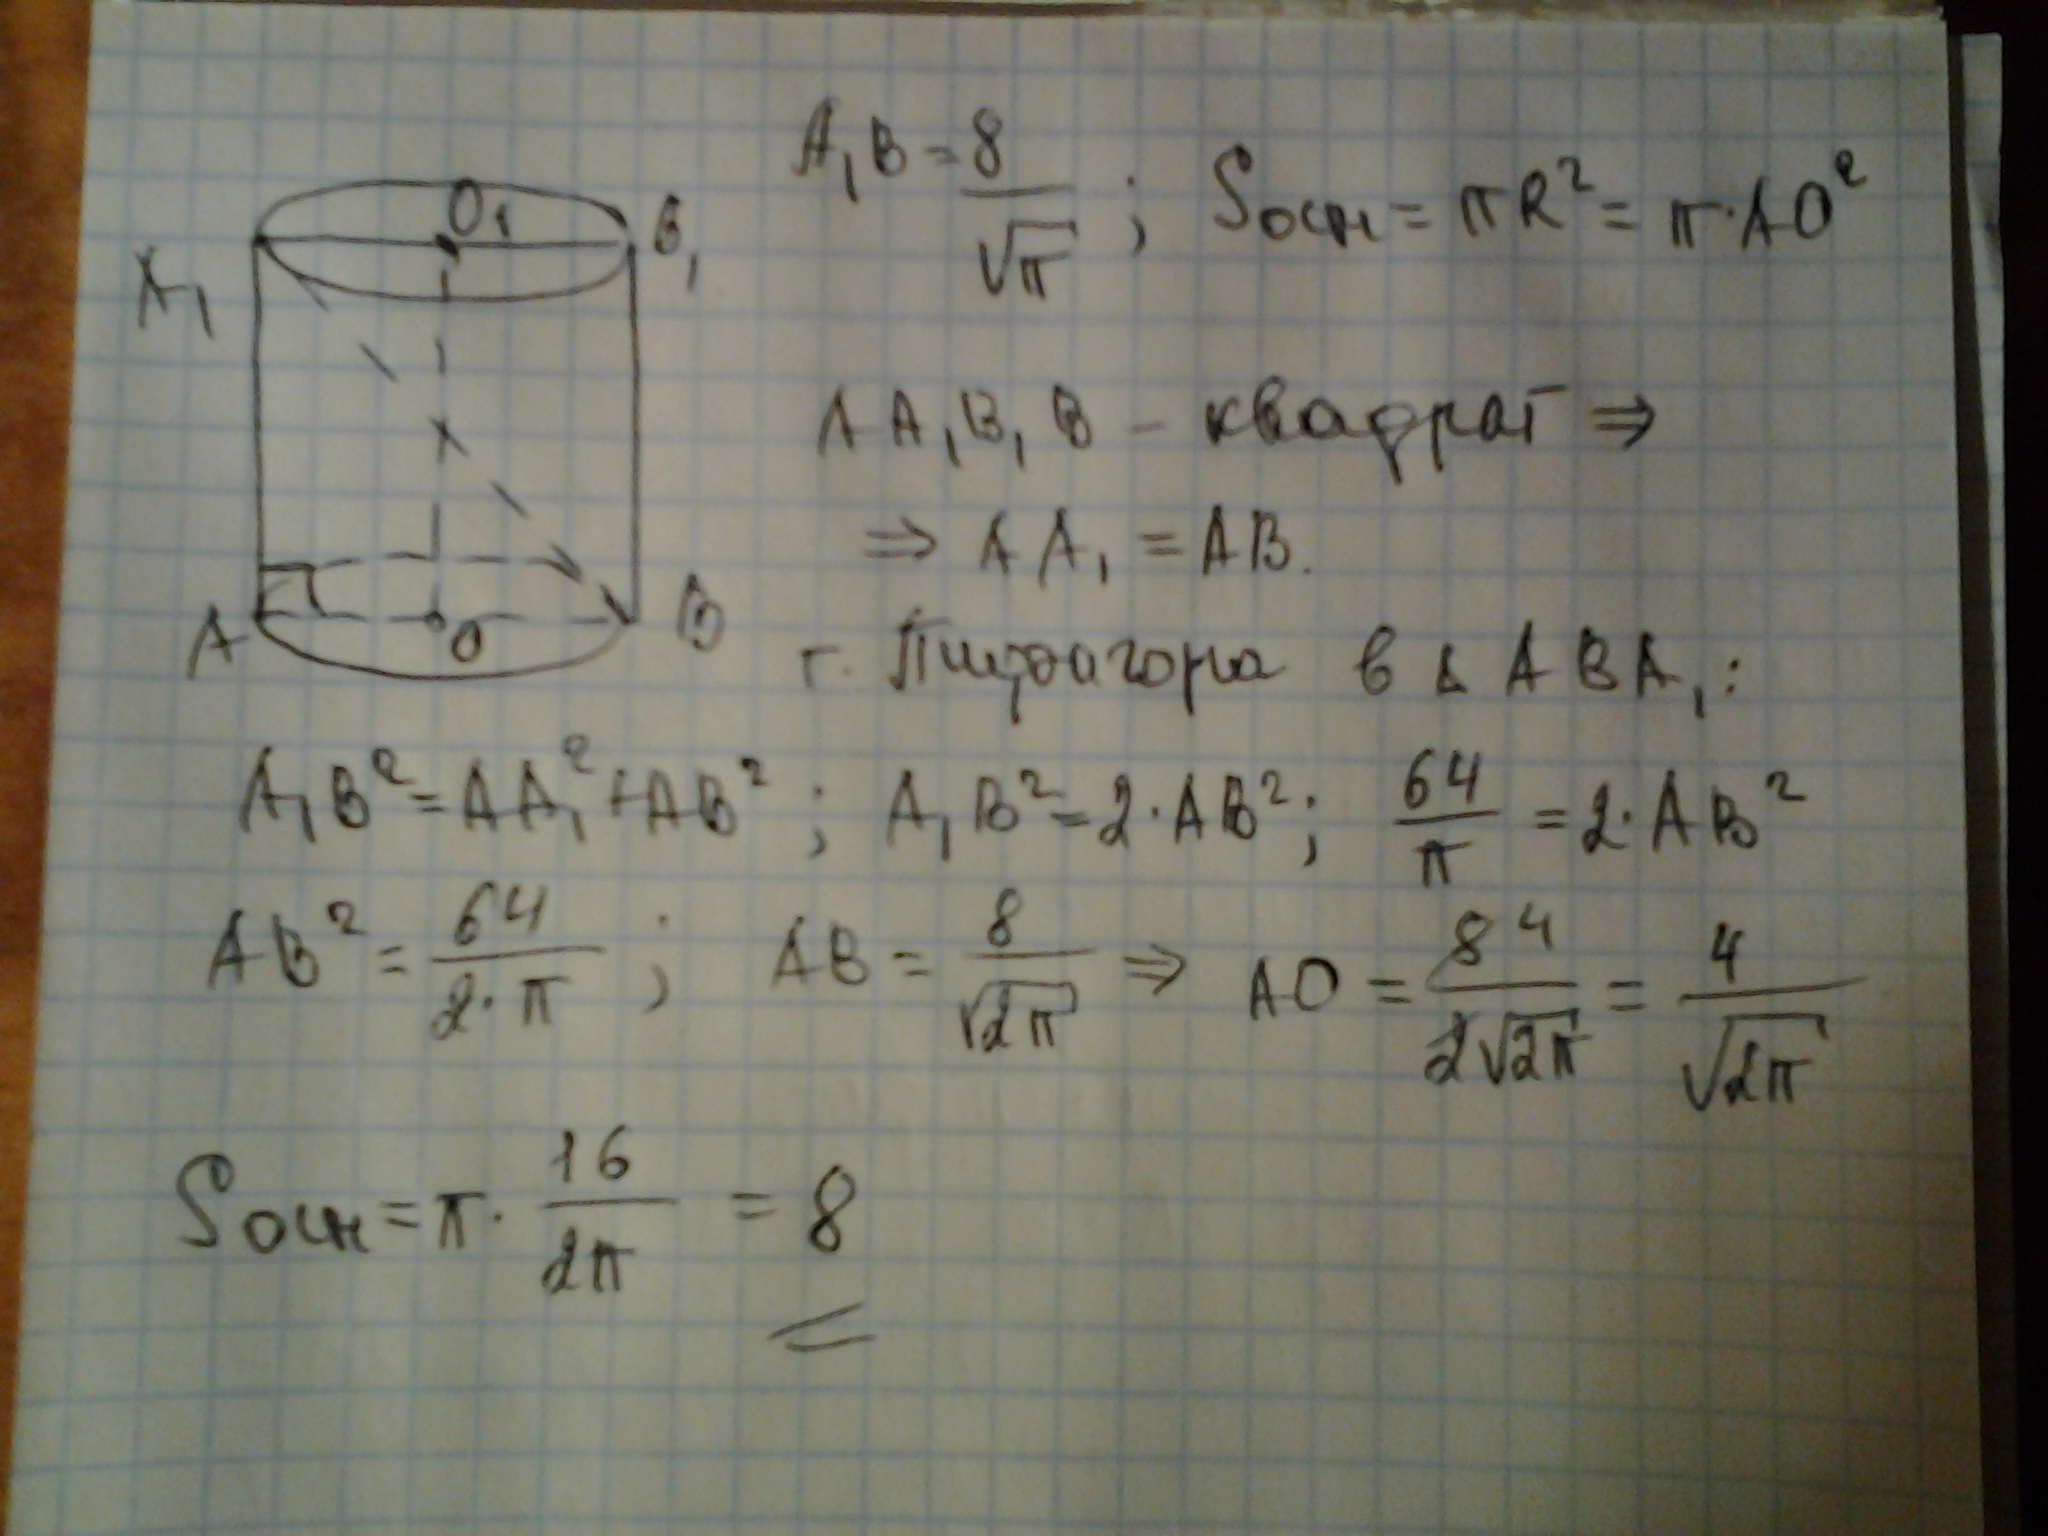 A₁B = 8/√π ; Sосн = πR² = π·AO²
O₁
B₁
A₁
AA₁B₁B – квадрат ⇒
⇒ AA₁ = AB.
A
O
B
т. Пифагора в △ ABA₁ :
A₁B² = AA₁² + AB² ; A₁B² = 2·AB² ; 64/π = 2·AB²
AB² = 64/(2·π) ; AB = 8/√(2π) ⇒ AO = 8 4/(2√(2π)) = 4/√(2π)
Sосн = π · 16/(2π) = 8